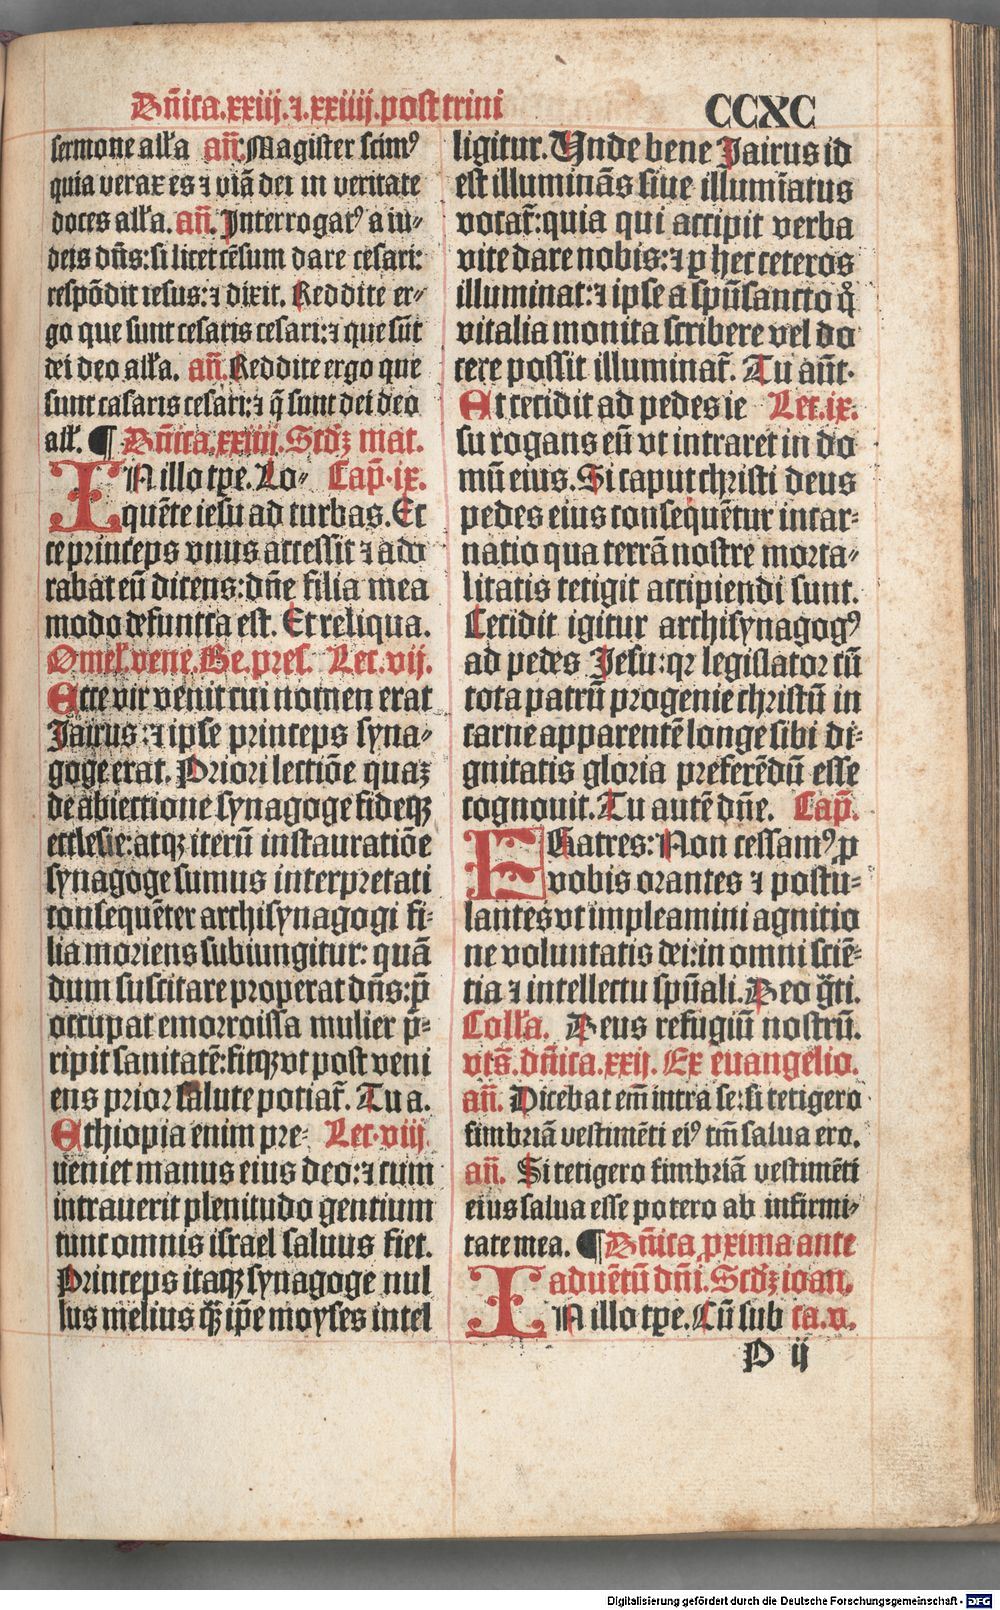 Dñica.xxiij.⁊.xxiiij.post trini
CCXC
sermone alła añ. Magister scimꝰ
quia verax es ⁊ viã dei in veritate
doces alła. añ. Interrogatꝰ a iu-
deis dñs: si licet cẽsum dare cesari:
respõdit iesus: ⁊ dixit. Reddite er-
go que sunt cesaris cesari: ⁊ que sũt
dei deo alła. añ. Reddite ergo que
sunt casaris cesari: ⁊ q̃ sunt dei deo
alł. ¶ Dñica.xxiiij. Scd̃ꝫ mat.
IN illo tꝑe. Lo- Cap̃.ix.
quẽte iesu ad turbas. Ec
ce princeps vnus accessit ⁊ ado
rabat eũ dicens: dñe filia mea
modo defuncta est. Et reliqua.
Omeł. vene. Be. pres. Lec. vij.
Ecce vir venit cui nomen erat
Jairus: ⁊ ipse princeps syna-
goge erat. Priori lectiõe quaꝫ
de abiectione synagoge fideqꝫ
ecclesie: atqꝫ iterũ instauratiõe
synagoge sumus interpretati
consequẽter archisynagogi fi-
lia moriens subiungitur: quã
dum suscitare properat dñs: p̃
occupat emorroissa mulier p̃-
ripit sanitatẽ: sitqꝫ vt post veni
ens prior salute potiat̃. Tu a.
Ethiopia enim pre- Lec. viij
ueniet manus eius deo: ⁊ cum
intrauerit plenitudo gentium
tunc omnis israel saluus fiet.
Princeps itaqꝫ synagoge nul
lus melius q̃ꝫ ip̃e moyses intel
ligitur. Unde bene Jairus id
est illuminãs siue illumĩatus
vocat̃: quia qui accipit verba
vite dare nobis: ⁊ ꝑ hec ceteros
illuminat: ⁊ ipse a spũsancto q̊
vitalia monita scribere vel do
cere possit illuminat̃. Tu aũt.
Et cecidit ad pedes ie Lec. ix.
su rogans eũ vt intraret in do
mũ eius. Si caput christi deus
pedes eius consequẽtur incar-
natio qua terrã nostre morta-
litatis tetigit accipiendi sunt.
Cecidit igitur archisynagogꝰ
ad pedes Jesu: qr legislator cũ
tota patrũ progenie christũ in
carne apparentẽ longe sibi di-
gnitatis gloria preferẽdũ esse
cognouit. Tu autẽ dñe. Cap̃.
FRatres: Non cessamꝰ ꝑ
vobis orantes ⁊ postu-
lantes vt impleamini agnitio
ne voluntatis dei: in omni sciẽ-
tia ⁊ intellectu spũali. Deo g̃ti.
Colła. Deus refugiũ nostrũ.
vts̃. dñica.xxij. Ex euangelio.
añ. Dicebat em̃ intra se: si tetigero
fimbriã vestimẽti eiꝰ tm̃ salua ero.
añ. Si tetigero fimbriã vestimẽti
eius salua esse potero ab infirmi-
tate mea. ¶ Dñica ꝓxima ante
aduẽtũ dñi. Scd̃ꝫ ioan.
IN illo tꝑe. Cũ sub ca.v.
P ij
Digitalisierung gefördert durch die Deutsche Forschungsgemeinschaft - DFG